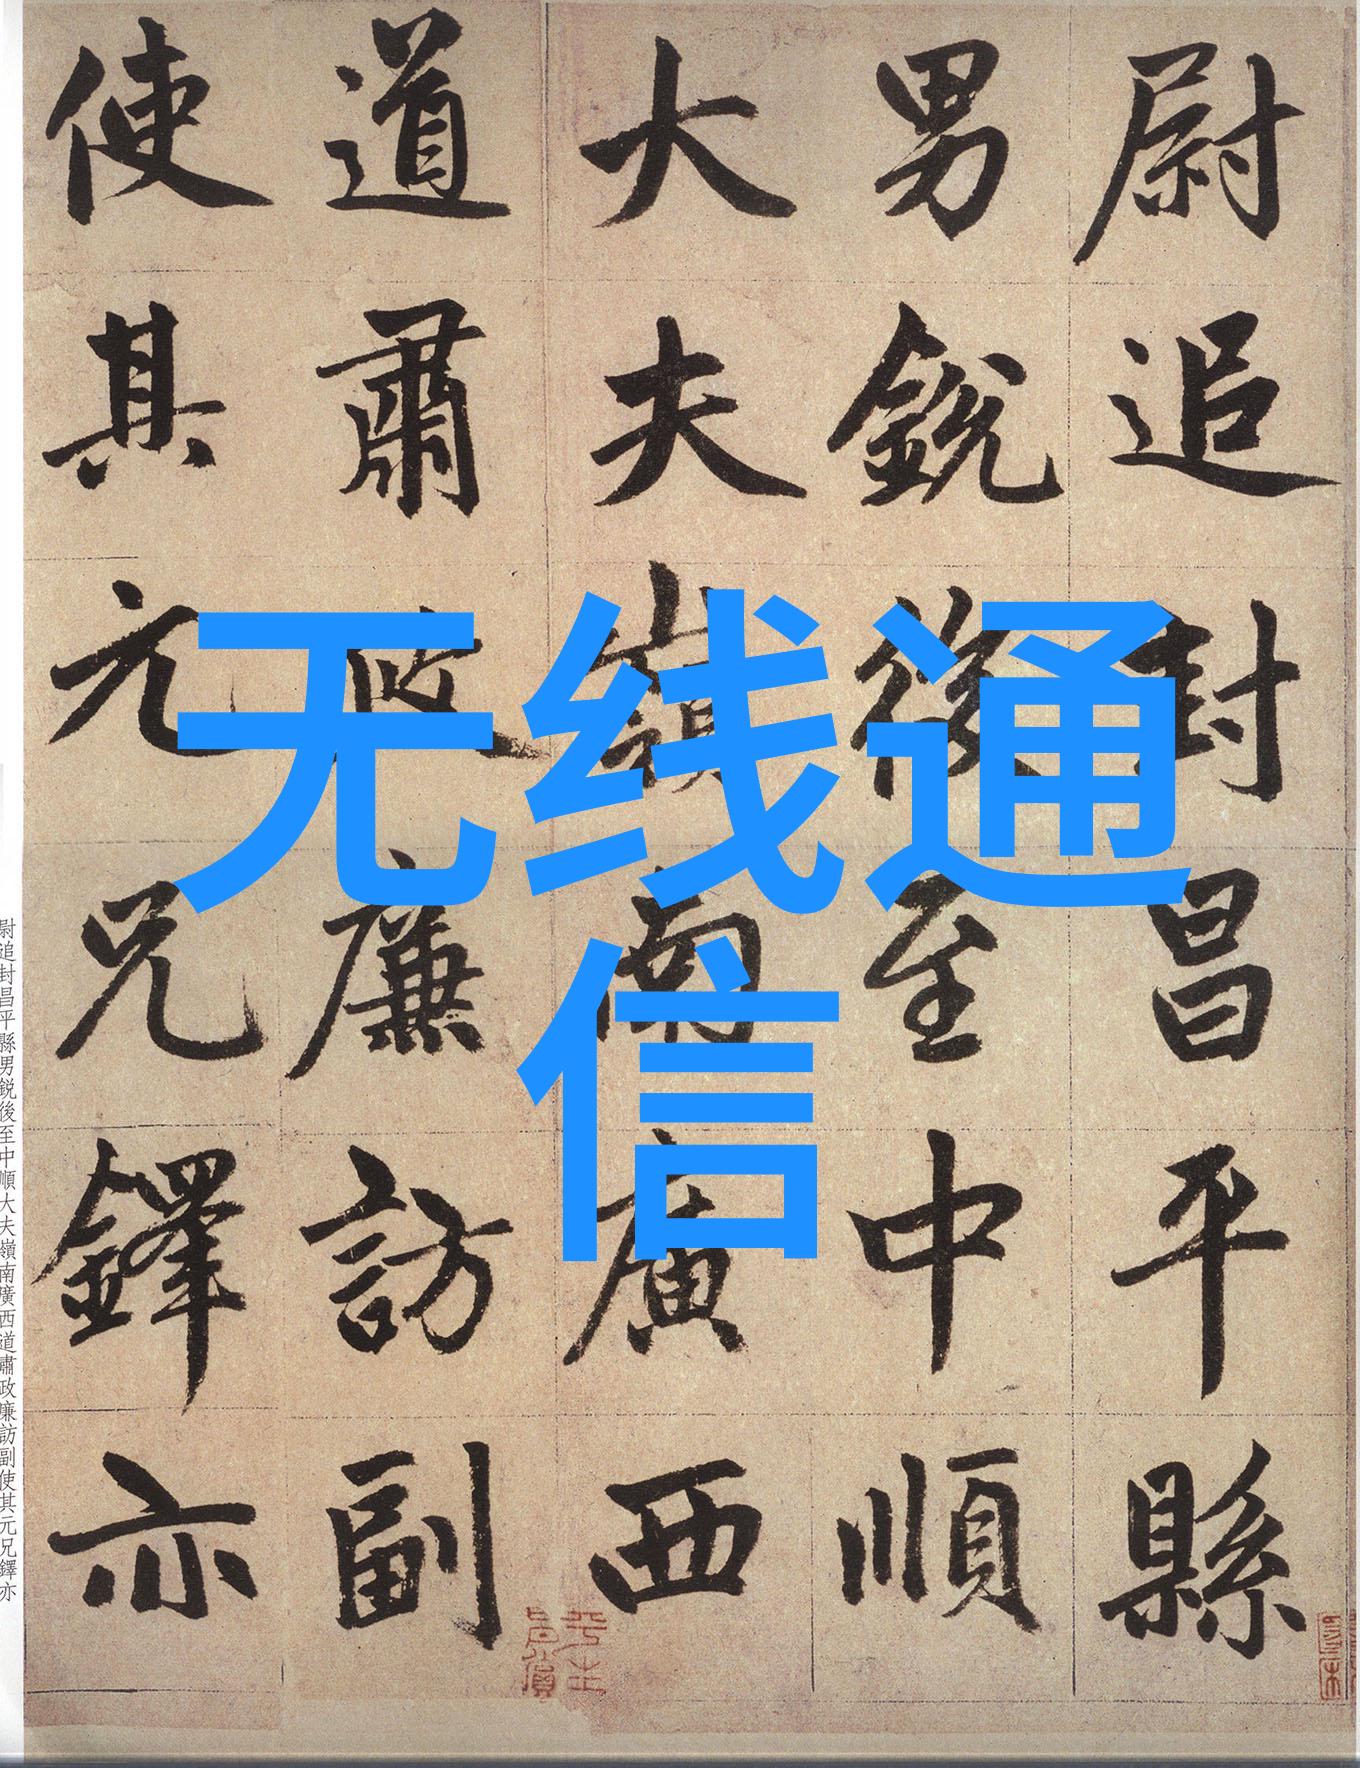 尉追封昌平縣
男銳後至中順
大夫嶺南廣西
道肅政廉訪副
使其元兄鐸亦
无线通
信
尉追封昌平縣男銳後至中順大夫嶺南廣西道肅政廉訪副使其元兄鐸亦